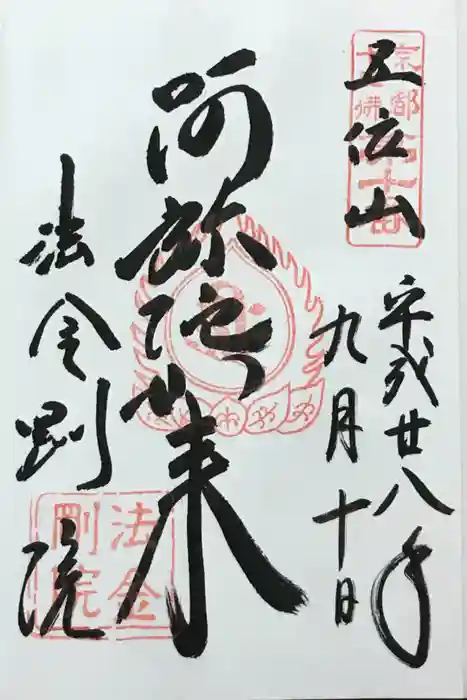 五位山
平成廿八年
九月十日
阿弥陀如来
法金剛院
京都
法金剛院